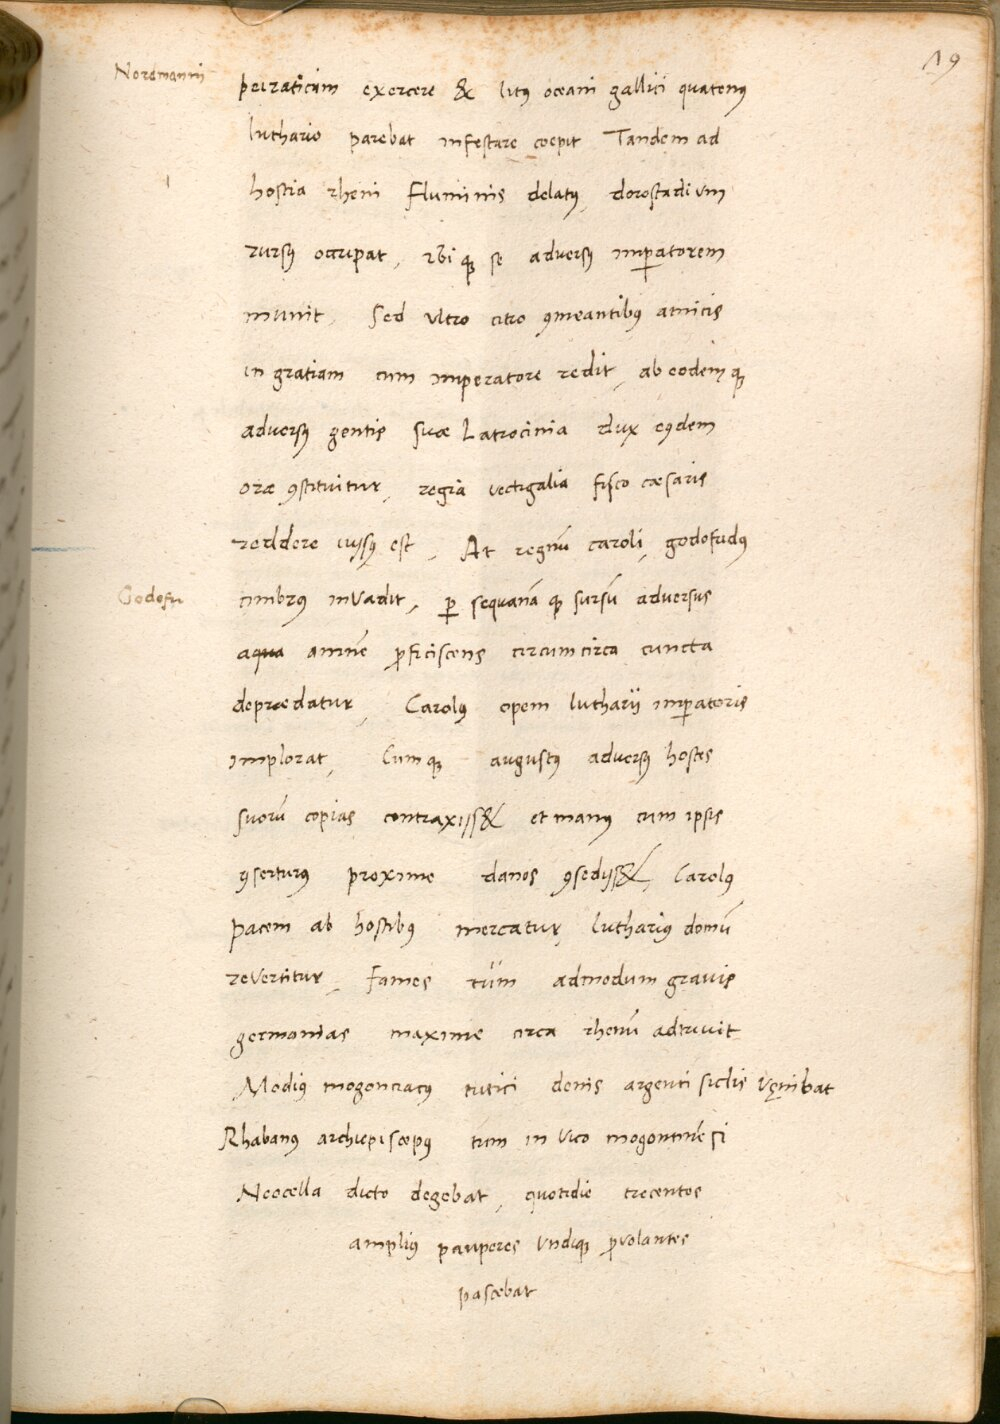 19
Nordmanni
peiraticam exercere & litꝰ oceani gallici quatenꝰ
luthario parebat infestare coepit Tandem ad
hostia rheni fluminis delatꝰ, dorostadium
rursꝰ occupat, ibi qꝫ se adversꝰ imꝑatorem
munit, Sed ultro citro ꝯmeantibꝰ amicis
in gratiam cum imperatore redit, ab eodem qꝫ
adversꝰ gentis suæ Latrocinia dux eꝰdem
oræ ꝯstituitur, regia vectigalia fisco cæsaris
reddere iussꝰ est, At regnū caroli, godofridꝰ
Godefri
cimbrꝰ invadit, ꝑ sequanā qꝫ sursū adversus
aqua amnē ꝓficiscens circumcirca cuncta
deprædatur, Carolꝰ opem lutharii imꝑatoris
implorat, Cum qꝫ augustꝰ adversꝰ hostes
suorū copias contraxiss& et manꝰ cum ipsis
ꝯserturꝰ proxime danos ꝯsediss&, Carolꝰ
pacem ab hostibꝰ mercatur, luthariꝰ domū
revertitur, fames tum admodum gravis
germanias maxime circa rhenū adtrivit
Modiꝰ mogonciacꝰ tritici denis argenti siclis vęnibat
Rhabanꝰ archiepiscopꝰ tum in vico mogontinēsi
Neocella dicto degebat, quotidie trecentos
ampliꝰ pauperes undiqꝫ ꝓvolantes
pascebat